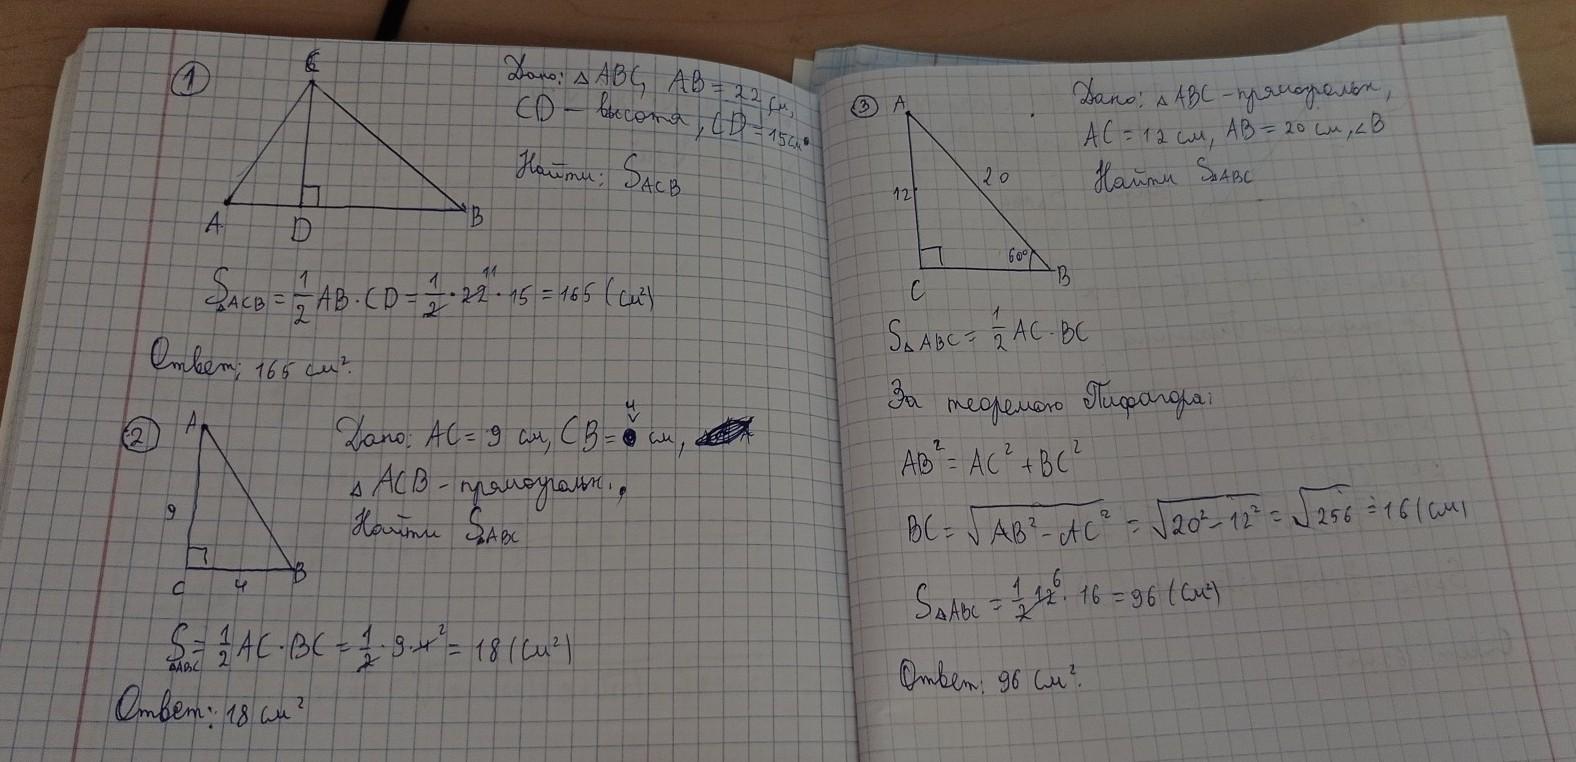 1
C
A
D
B
Дано: △ ABC, AB = 22 см,
CD – высота, CD = 15 см.
Найти: S ACB
S△ACB = 1/2 AB · CD = 1/2 · 22 11 · 15 = 165 (см²)
Ответ: 165 см².
2
A
9
C
4
B
Дано: AC = 9 см, CB = 4 см,
△ ACB – прямоугольн.,
Найти S△ABC
S△ABC = 1/2 AC · BC = 1/2 · 9 · 4 2 = 18 (см²)
Ответ: 18 см²
3
A
12
20
60°
C
B
Дано: △ ABC – прямоугольн,
AC = 12 см, AB = 20 см, ∠B
Найти S△ABC
S△ABC = 1/2 AC · BC
За теоремою Пифагора:
AB² = AC² + BC²
BC = √AB² – AC² = √20² – 12² = √256 = 16 (см)
S△ABC = 1/2 12 6 · 16 = 96 (см²)
Ответ: 96 см².